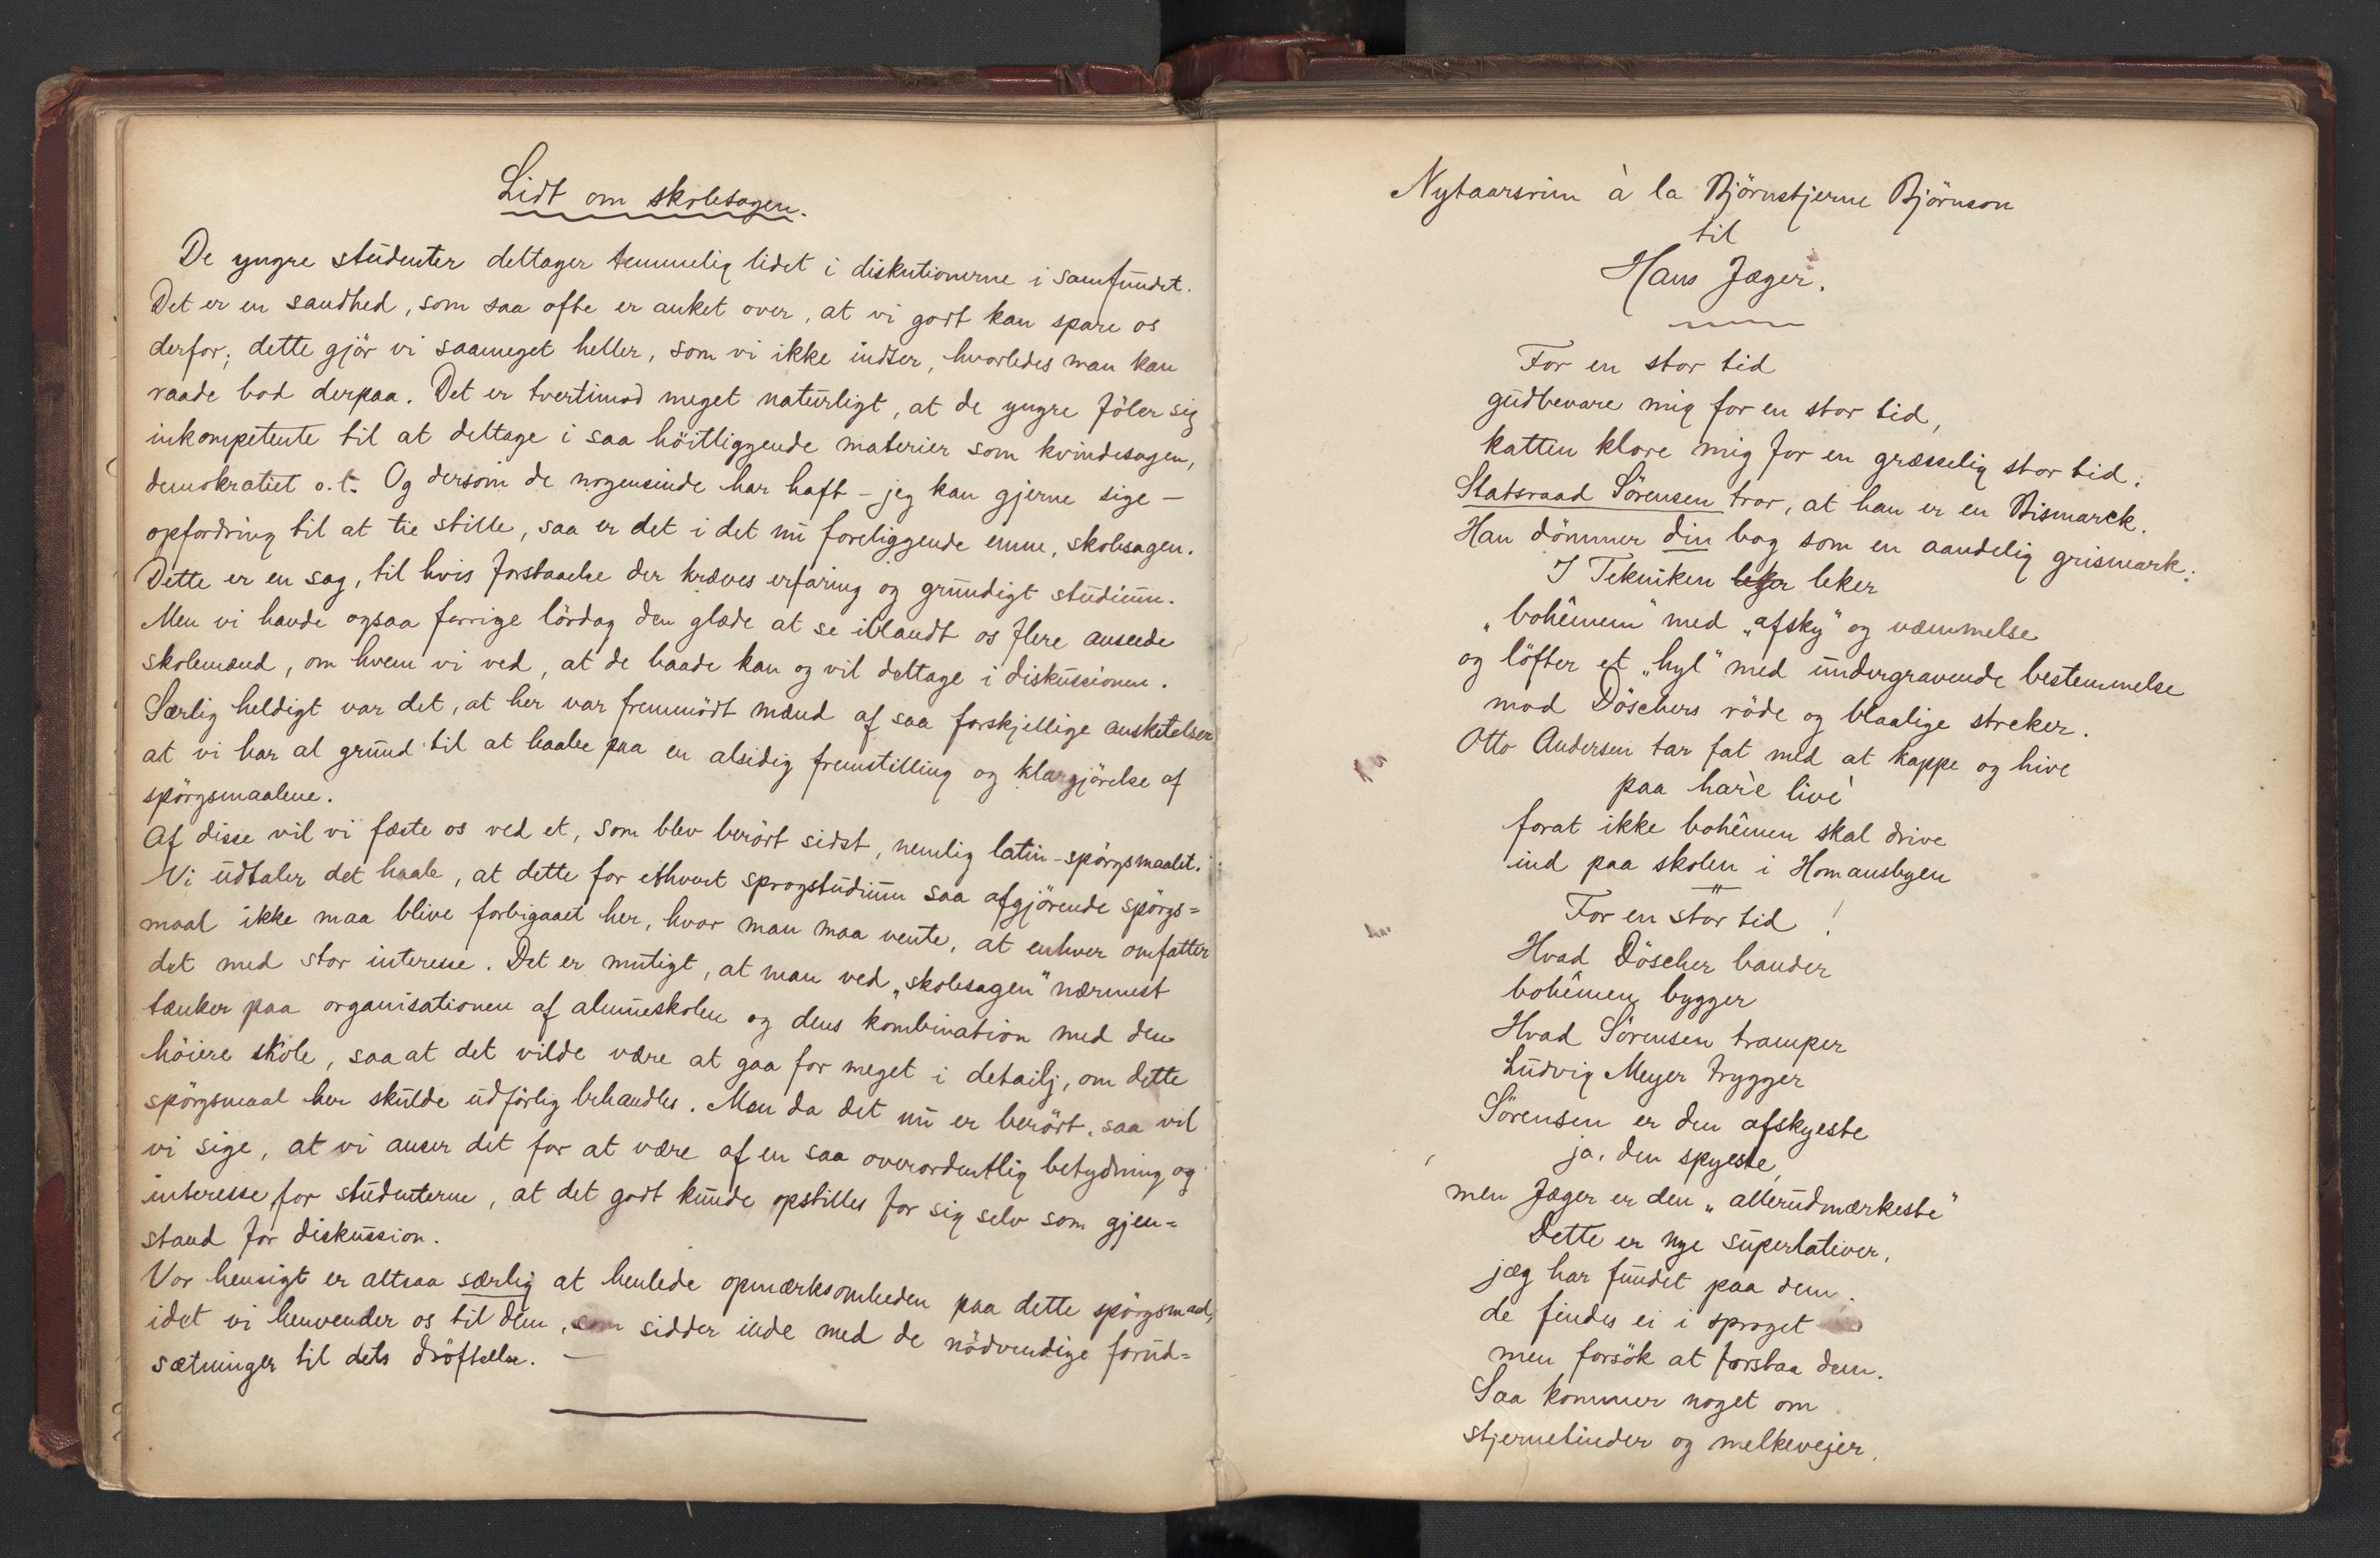 Lidt om skolesagen.
De yngre studenter deltager temmelig lidet i diskutionerne i samfundet.
Det er en sandhed, som saa ofte er anket over, at vi godt kan spare os
derfor; dette gjör vi saameget heller, som vi ikke indser, hvorledes man kan
raade bod derpaa. Det er tvertimod meget naturligt, at de yngre föler sig
inkompetente til at deltage i saa höitliggende materier som kvindesagen,
demokratiet o.l. Og dersom de nogensinde har haft - jeg kan gjerne sige -
opfordring til at tie stille, saa er det i det nu foreliggende emne, skolesagen.
Dette er en sag, til hvis forstaaelse der kræves erfaring og grundigt studium.
Men vi havde ogsaa forrige lördag den glæde at se iblandt os flere ansede
skolemænd, om hvem vi ved, at de baade kan og vil deltage i diskussionen.
Særlig heldigt var det, at her var fremmödt mænd af saa forskjellige anskuelser
at vi har al grund til at haabe paa en alsidig fremstilling og klargjörelse af
spörgsmaalene.
Af disse vil vi fæste os ved et, som blev berört sidst, nemlig latin-spörgsmaalet.
Vi udtaler det haab, at dette for ethvert sprogstudium saa afgjörende spörgs=
maal ikke maa blive forbigaaet her, hvor man maa vente, at enhver omfatter
det med stor interesse. Det er muligt, at man ved „skolesagen" nærmest
tænker paa organisationen af almueskolen og dens kombination med den
höiere skole, saa at det vilde være at gaa for meget i detailj, om dette
spörgsmaal her skulde udförlig behandles. Men da det nu er berört, saa vil
vi sige, at vi anser det for at være af en saa overordentlig betydning og
interesse for studenterne, at det godt kunde opstilles for sig selv som gjen=
stand for diskussion.
Vor hensigt er altsaa særlig at henlede opmærksomheden paa dette spörgsmaal,
idet vi henvender os til dem, som sidder inde med de nödvendige forud=
sætninger til dets dröftelse. —
Nytaarsrim à la Björnstjerne Björnson
til
Hans Jæger.
For en stor tid
gudbevare mig for en stor tid,
katten klore mig for en græsselig stor tid.
Statsraad Sörensen tror, at han er en Bismarck.
Han dömmer din bog som en aandelig grismark.
I Tekniken leker
„bohêmen" med „afsky" og væmmelse
og löfter et „hyl" med undergravende bestemmelse
mod Döschers röde og blaalige streker.
Otto Andersen tar fat med at kappe og hive
paa harè livè
forat ikke bohêmen skal drive
ind paa skolen i Homansbyen
For en stor tid!
Hvad Döscher bander
bohêmen bygger
Hvad Sörensen tramper
Ludvig Meyer trygger
Sörensen er den afskyeste
ja, den spyeste
men Jæger er den „allerudmærkeste"
Dette er nye superlativer,
jæg har fundet paa dem;
de findes ei i sproget
men forsök at forstaa dem.
Saa kommer noget om
stjernetinder og melkevejer.